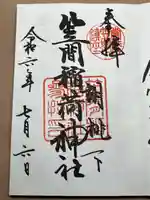 奉拝
笠間稲荷神社
胡桃下
令和六年 七月六日